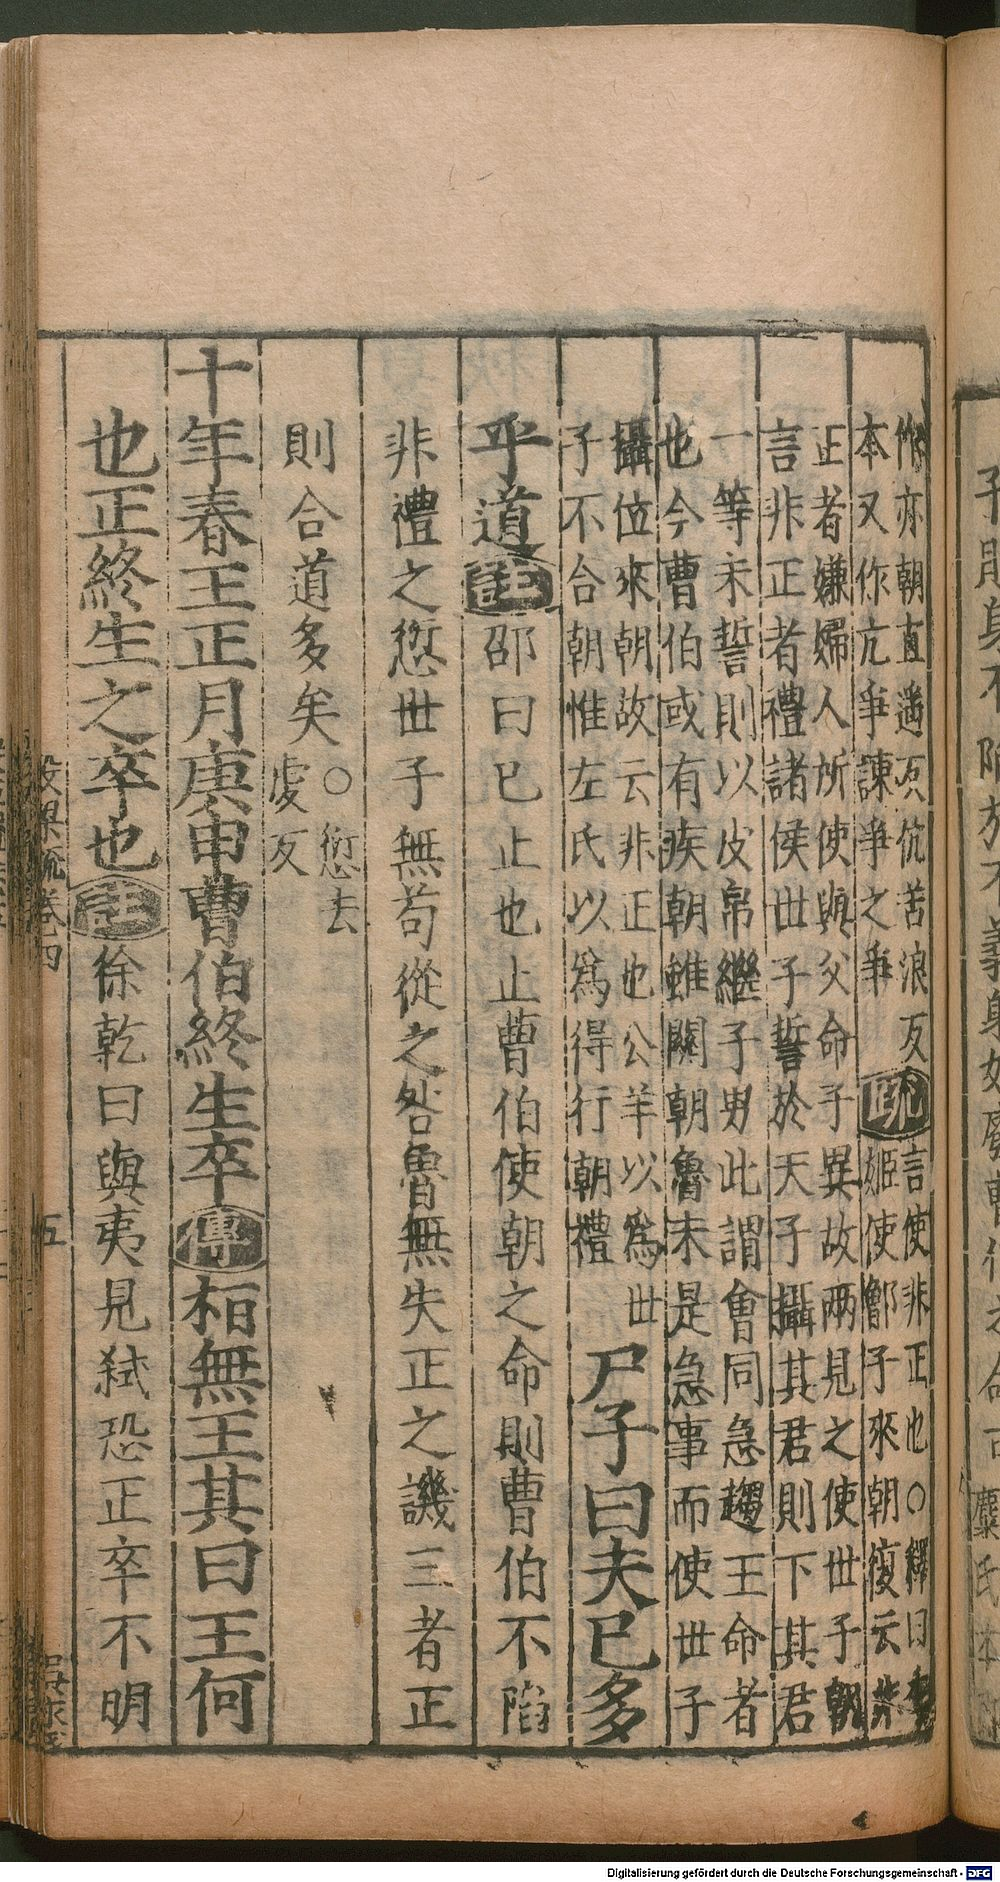 作亦朝直遥反伉苦浪反
本又作亢爭諫爭之爭
疏
言使非正也○釋曰季
姬使鄫子來朝復云非
正者嫌婦人所使與父命子異故兩見之使世子朝
言非正者禮諸侯世子誓於天子攝其君則下其君
一等未誓則以皮帛繼子男此謂會同急趨王命者
也今曹伯或有疾朝雖闕朝魯未是急事而使世子
攝位來朝故云非正也公羊以爲世
子不合朝惟左氏以爲得行朝禮
尸子曰夫已多
乎道註邵曰已止也止曹伯使朝之命則曹伯不陷
非禮之愆世子無苟從之咎魯無失正之譏三者正
則合道多矣○愆去
虔反
十年春王正月庚申曹伯終生卒傳桓無王其曰王何
也正終生之卒也註徐乾曰與夷見弒恐正卒不明
穀梁疏卷四
五
Digitalisierung gefördert durch die Deutsche Forschungsgemeinschaft - DFG